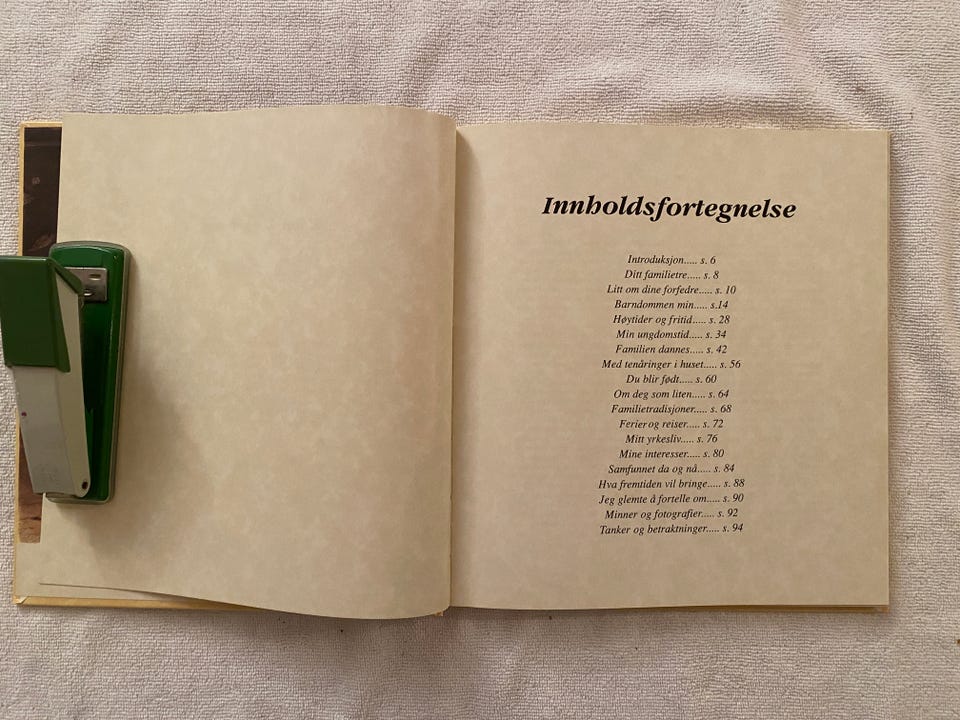 Innholdsfortegnelse
Introduksjon..... s. 6
Ditt familietre..... s. 8
Litt om dine forfedre..... s. 10
Barndommen min..... s.14
Høytider og fritid..... s. 28
Min ungdomstid..... s. 34
Familien dannes..... s. 42
Med tenåringer i huset..... s. 56
Du blir født..... s. 60
Om deg som liten..... s. 64
Familietradisjoner..... s. 68
Ferier og reiser..... s. 72
Mitt yrkesliv..... s. 76
Mine interesser..... s. 80
Samfunnet da og nå..... s. 84
Hva fremtiden vil bringe..... s. 88
Jeg glemte å fortelle om..... s. 90
Minner og fotografier..... s. 92
Tanker og betraktninger..... s. 94